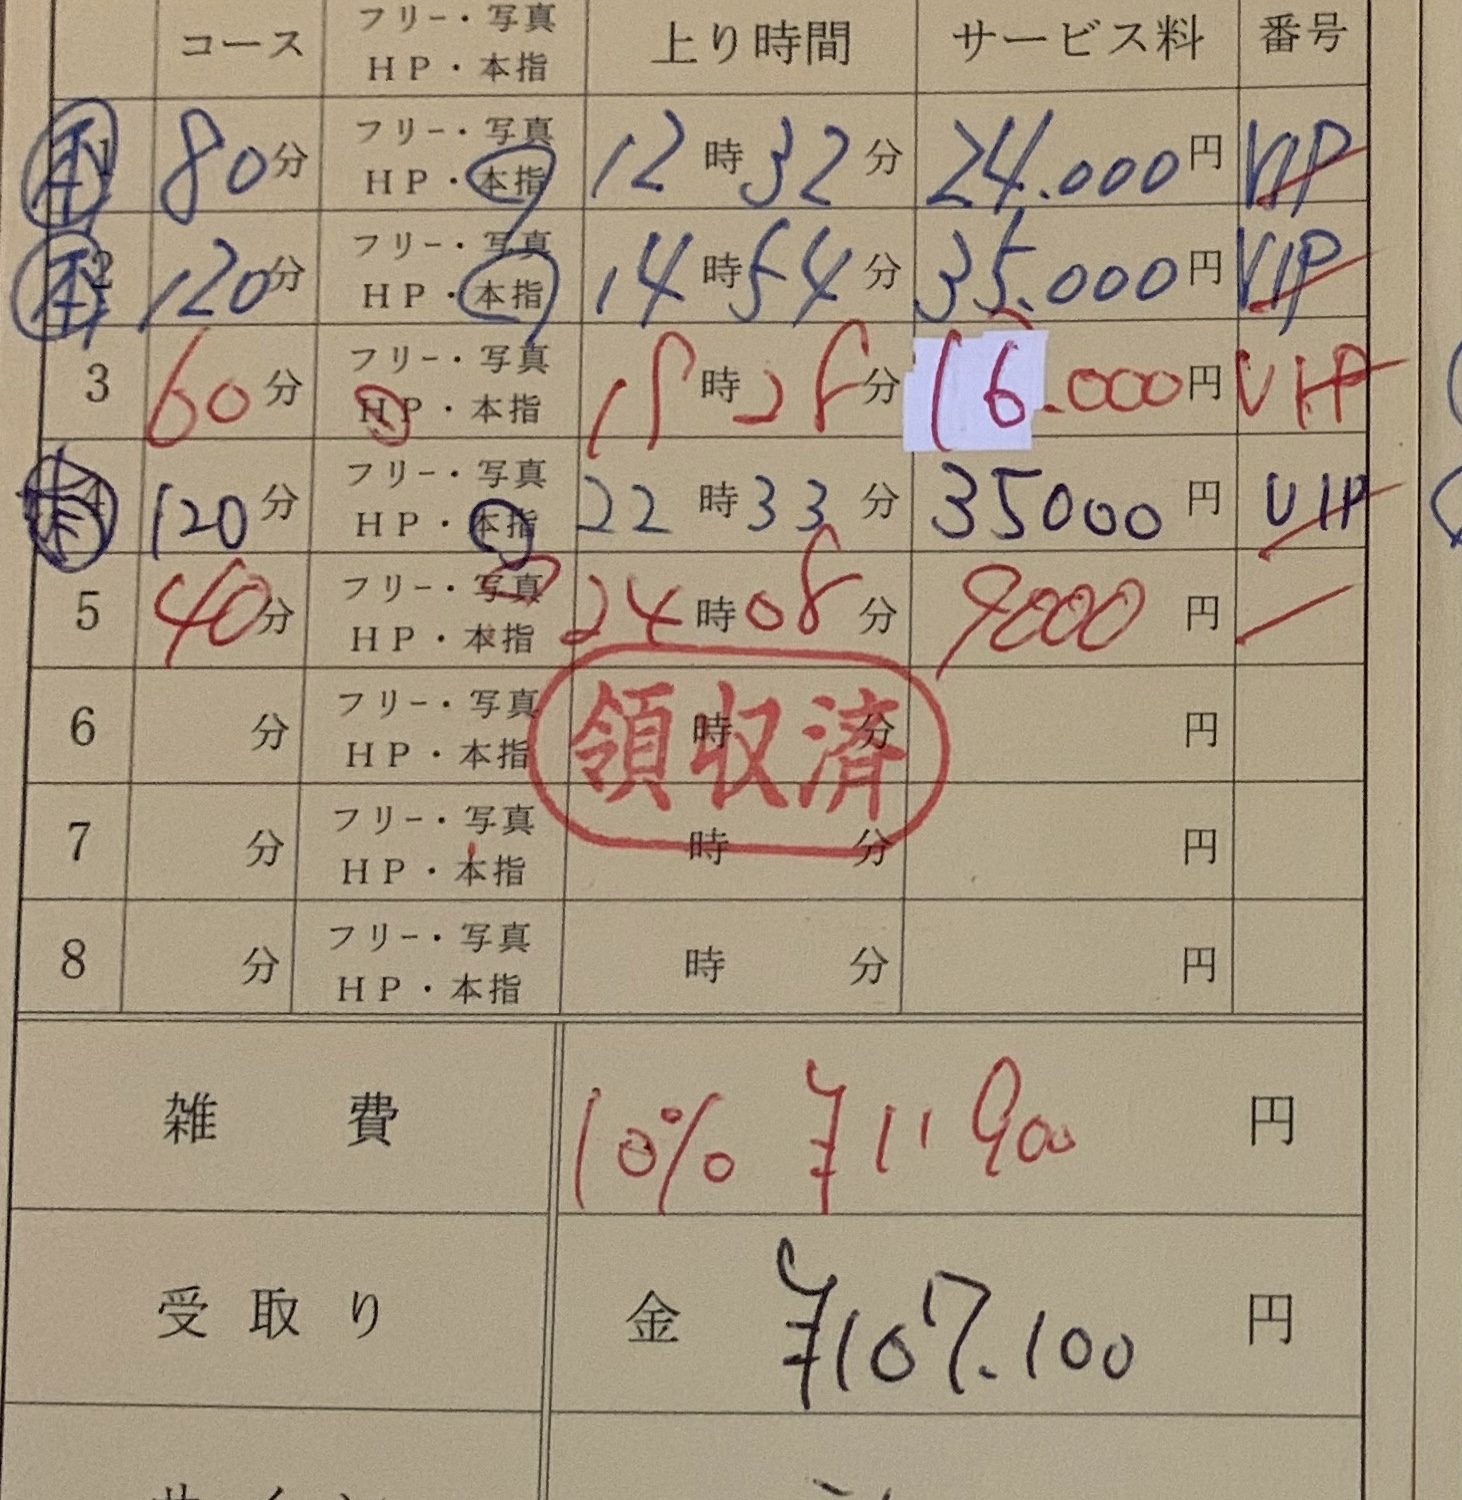 コース フリー・写真 HP・本指 上り時間 サービス料 番号
本 1 80分 フリー・写真 HP・本指 12時32分 24.000円 VIP
本 2 120分 フリー・写真 HP・本指 14時54分 35.000円 VIP
3 60分 フリー・写真 HP・本指 18時28分 16.000円 VIP
本 4 120分 フリー・写真 HP・本指 22時33分 35000円 VIP
5 40分 フリー・写真 HP・本指 24時08分 9000円
6 分 フリー・写真 HP・本指 時 分 円
領収済
7 分 フリー・写真 HP・本指 時 分 円
8 分 フリー・写真 HP・本指 時 分 円
雑費 10% ¥11900円
受取り 金 ¥107.100円